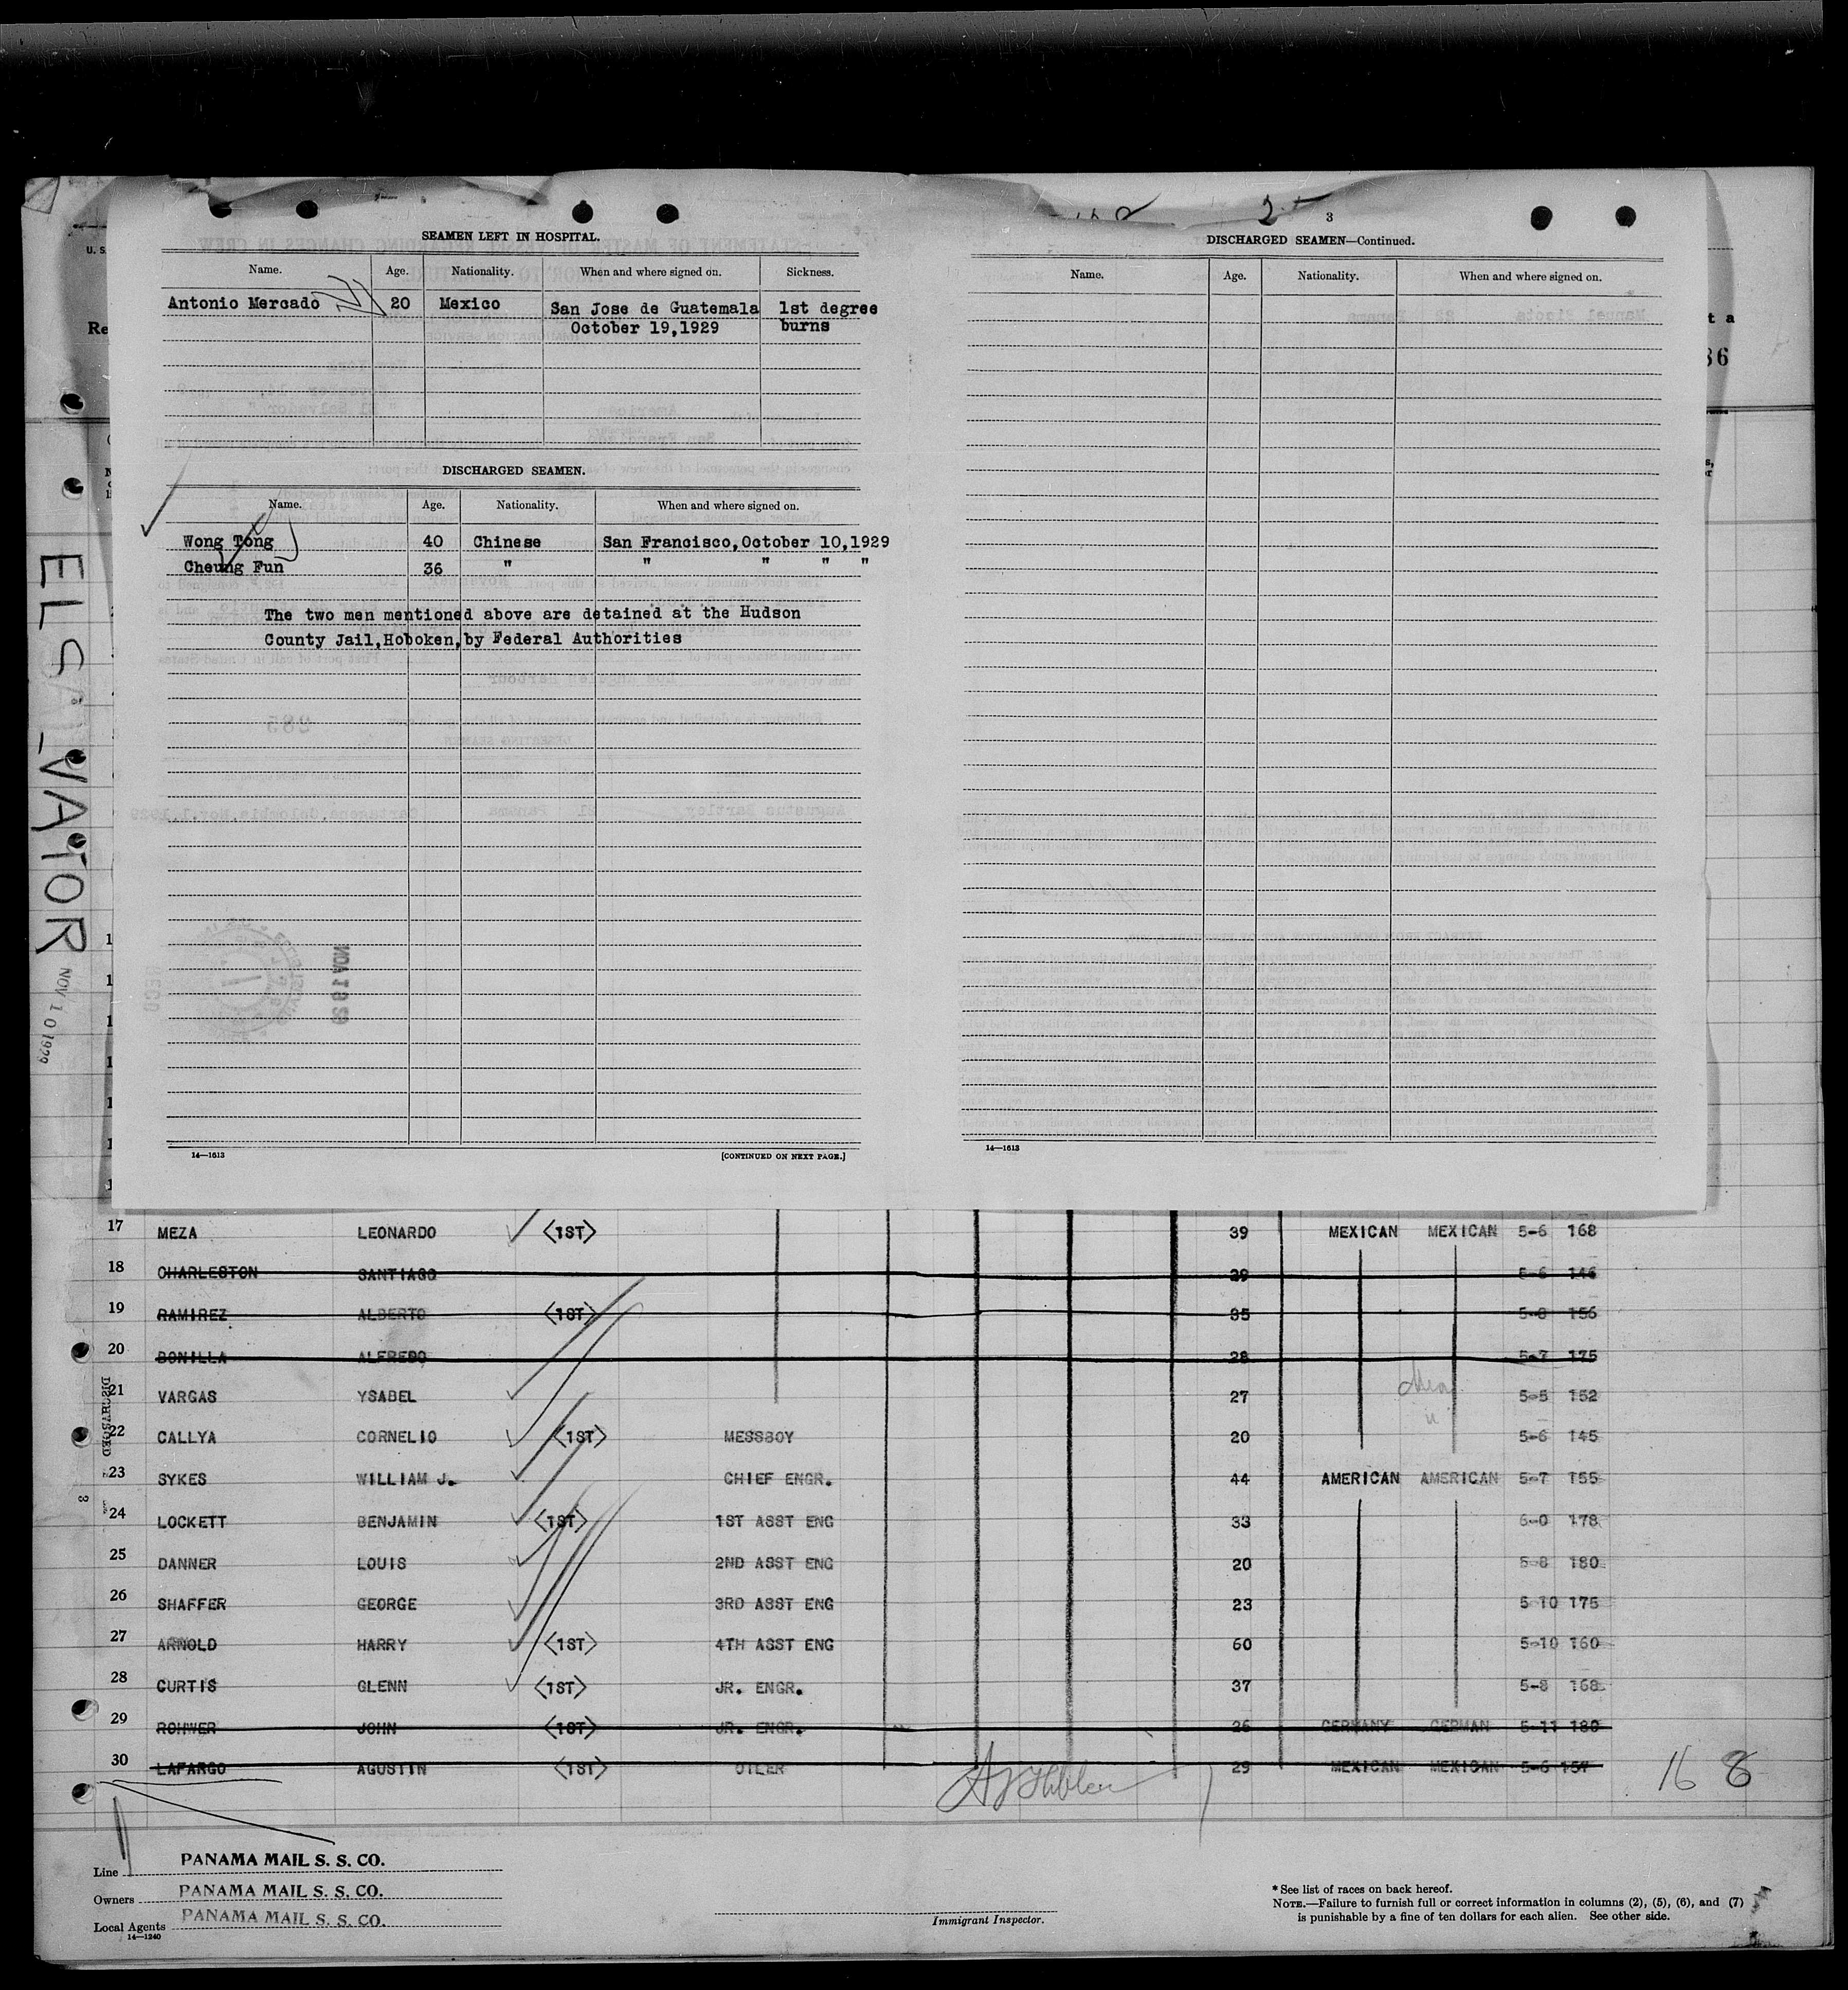 3
SEAMEN LEFT IN HOSPITAL.
Name. Age. Nationality. When and where signed on. Sickness.
Antonio Mercado 20 Mexico San Jose de Guatemala 1st degree
October 19,1929 burns
DISCHARGED SEAMEN.
Name. Age. Nationality. When and where signed on.
Wong Tong 40 Chinese San Francisco, October 10,1929
Cheung Fun 36 " " " " "
The two men mentioned above are detained at the Hudson
County Jail,Hoboken,by Federal Authorities
14—1613 [CONTINUED ON NEXT PAGE.]
DISCHARGED SEAMEN—Continued.
Name. Age. Nationality. When and where signed on.
14—1613
U. S.
Re
t a
36
EL SALVATOR
NOV 10 1929
17 MEZA LEONARDO <1ST> 39 MEXICAN MEXICAN 5-6 168
18 CHARLESTON SANTIAGO 29 5-6 146
19 RAMIREZ ALBERTO <1ST> 35 5-8 156
20 BONILLA ALFREDO 28 5-7 175
21 VARGAS YSABEL 27 5-5 152
22 CALLYA CORNELIO <1ST> MESSBOY 20 5-6 145
23 SYKES WILLIAM J. CHIEF ENGR. 44 AMERICAN AMERICAN 5-7 155
24 LOCKETT BENJAMIN <1ST> 1ST ASST ENG 33 6-0 178
25 DANNER LOUIS 2ND ASST ENG 20 5-8 180
26 SHAFFER GEORGE 3RD ASST ENG 23 5-10 175
27 ARNOLD HARRY <1ST> 4TH ASST ENG 60 5-10 160
28 CURTIS GLENN <1ST> JR. ENGR. 37 5-8 168
29 ROHWER JOHN <1ST> JR. ENGR. 26 GERMANY GERMAN 5-11 180
30 LAFARGO AGUSTIN <1ST> OILER 29 MEXICAN MEXICAN 5-6 157
16 8
Line PANAMA MAIL S. S. CO.
Owners PANAMA MAIL S. S. CO.
Local Agents PANAMA MAIL S. S. CO.
14—1240
Immigrant Inspector.
* See list of races on back hereof.
NOTE.—Failure to furnish full or correct information in columns (2), (5), (6), and (7)
is punishable by a fine of ten dollars for each alien. See other side.